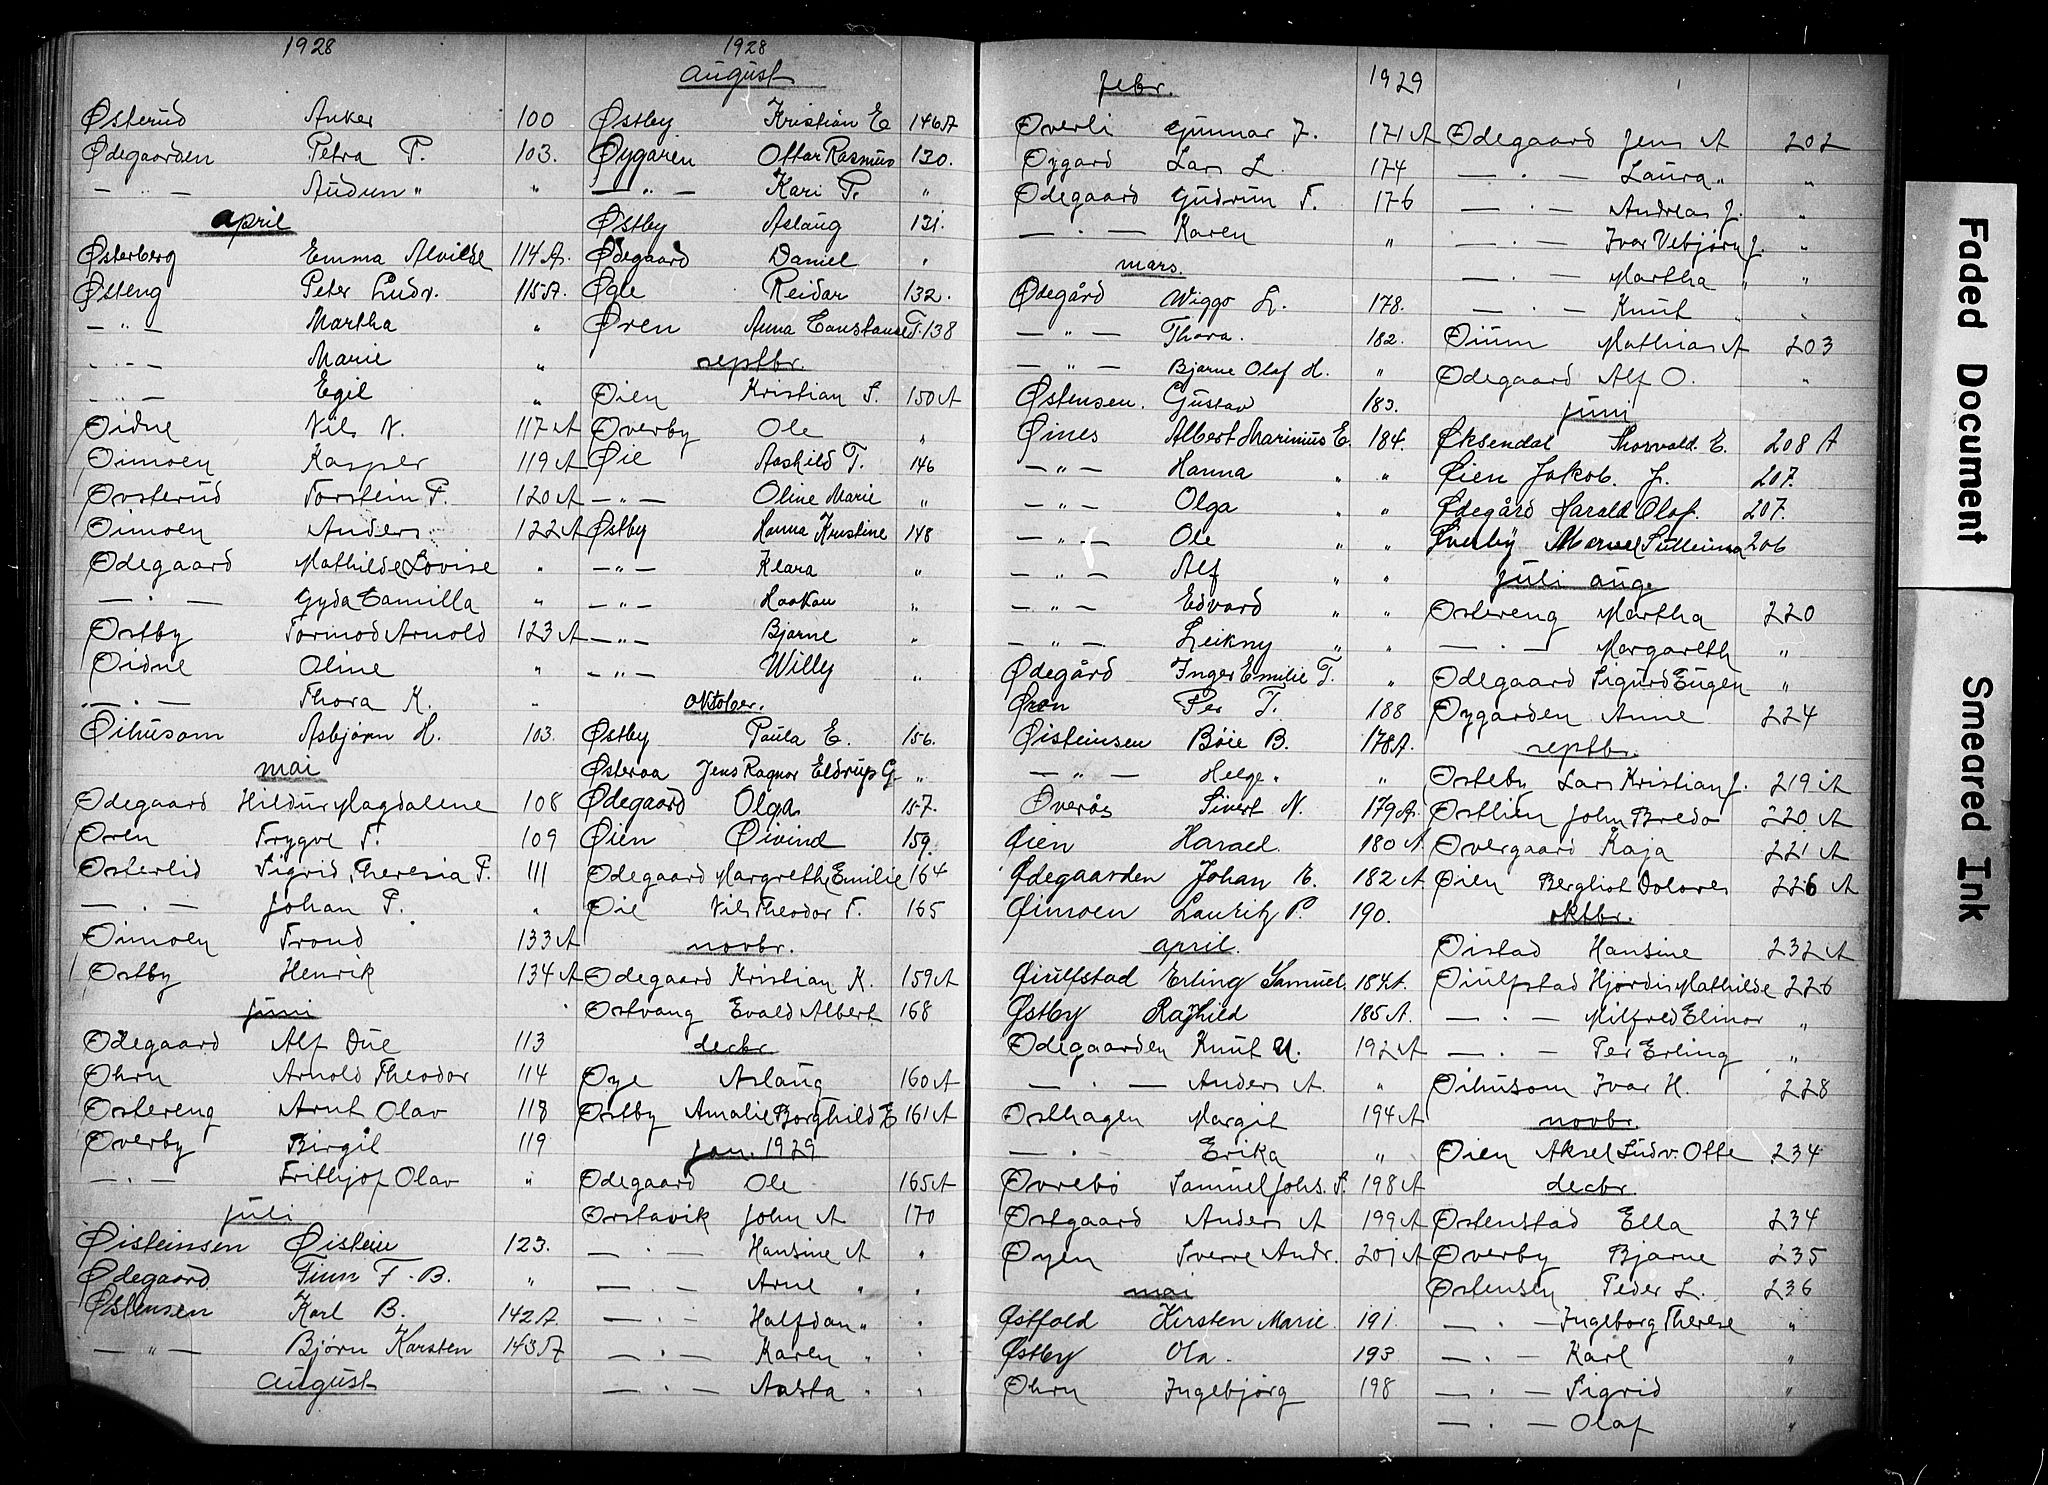 1928
Østerud Anker 100
Ødegaarden Petra P. 103.
— " — Audun " "
april
Østerberg Emma Alvilde 114 A.
Østeng Peter Ludv. 115 A.
— " — Martha "
— . — Marie "
— " — Egil "
Øidne Nils N. 117 A
Øimoen Kasper 119 A
Øvsterud Torstein P. 120 A
Øimoen Anders 122 A
Ødegaard Mathilde Lovise "
— . — Gyda Camilla "
Østby Tormod Arnold 123 A
Øidne Oline "
— . — Thora K. "
Øihusom Asbjørn H. 103.
mai
Ødegaard Hildur Magdalene 108
Øren Trygve T. 109
Østerlid Sigrid Theresia P. 111
— . — Johan P. "
Øimoen Trond 133 A
Østby Henrik 134 A
juni
Ødegaard Alf Due 113
Øhrn Arnold Theodor 114
Østereng Arnt Olav 118
Øverby Birgit 119
— . — Frithjof Olav "
juli
Øisteinsen Øistein 123.
Ødegaard Finn F. B. "
Østensen Karl B. 142 A.
— " — Bjørn Karsten 143 A
august
1928
august
Østby Kristian E 146 A
Øygaren Ottar Rasmus 130.
— " — Kari P. "
Østby Aslaug 131.
Ødegaard Daniel "
Øgle Reidar 132.
Øren Anna Constanse T. 138
septbr.
Øien Kristian S. 150 A
Øverby Ole "
Øie Aaskild T. 146
— " — Oline Marie "
Østby Hanna Kristine 148
— " — Klara "
— " — Haakon "
— " — Bjarne "
— " — Willy "
oktober.
Østby Paula E. 156.
Østeraa Jens Ragnar Eldrup G "
Ødegaard Olga 157.
Øien Øivind 159.
Ødegaard Margrethe Emilie 164
Øie Nils Theodor T. 165
novbr.
Ødegaard Kristian K. 159 A
Østvang Evald Albert 168
decbr
Øye Aslaug 160 A
Østby Amalie Borghild E 161 A
jan. 1929
Ødegaard Ole 165 A
Ørstavik John A 170
— . — Hansine A "
— . — Arne " "
— . — Halfdan " "
— . — Karen " "
— . — Aasta " "
febr. 1929
Øverli Gunnar J. 171 A
Øygard Lars L. 174
Ødegaard Gudrun T. 176
— . — Karen "
mars.
Ødegård Wiggo L. 178.
— " — Thora. 182.
— " — Bjarne Olaf H. "
Østensen. Gustav 183.
Øines Albert Marinius E. 184.
— " — Hanna " "
— " — Olga " "
— " — Ole " "
— " — Alf " "
— " — Edvard " "
— " — Leikny " "
Ødegård Inger Emilie T. "
Øren Per T. 188
Øisteinsen Bøie B. 178 A.
— " — Helge " "
Øverås Sivert N. 179 A.
Øien Harald 180 A
Ødegaarden Johan E. 182 A
Øimoen Lauritz P. 190.
april.
Øiulfstad Erling Samuel 184 A.
Østby Raghild 185 A.
Ødegaarden Knut A. 192 A
— . — Anders A. "
Østhagen Margit 194 A
— . — Erika "
Øvrebø Samuel Johs. S. 198 A
Østgaard Anders A 199 A
Øyen Sverre Andr. 201 A
mai
Østfold Kirsten Marie 191.
Østby Ola. 193
Øhrn Ingebjørg 198
Ødegaard Jens A 202
— . — Laura " "
— . — Andreas J. "
— . — Ivar Vebjørn J. "
— . — Martha " "
— . — Knut " "
Øium Mathias A 203
Ødegaard Alf O. "
juni
Øksendal Thorvald. E. 208 A
Øien Jakob. J. 207.
Ødegård Harald Olaf. 207.
Øverby 206
juli aug.
Østereng Martha 220
— . — Margareth "
Ødegaard Sigurd Eugen "
Øygarden Anne 224
septbr.
Østeby Lars Kristian J. 219 A
Østlien John Bredo 220 A
Øvergaard Kaja 221 A
Øien Bergliot Dolores 226 A
oktbr.
Øistad Hansine 232 A
Øiulfstad Hjørdis Mathilde 226
— . — Milfred Elinor "
— . — Per Erling "
Øihusom Ivar H. 228
novbr.
Øien Aksel Ludv. Otte 234
decbr.
Østenstad Ella 234
Øverby Bjarne 235
Østensen Peder L. 236
— . — Ingeborg Therese "
— . — Karl "
— . — Sigrid "
— . — Olaf "
Faded Document
Smeared Ink